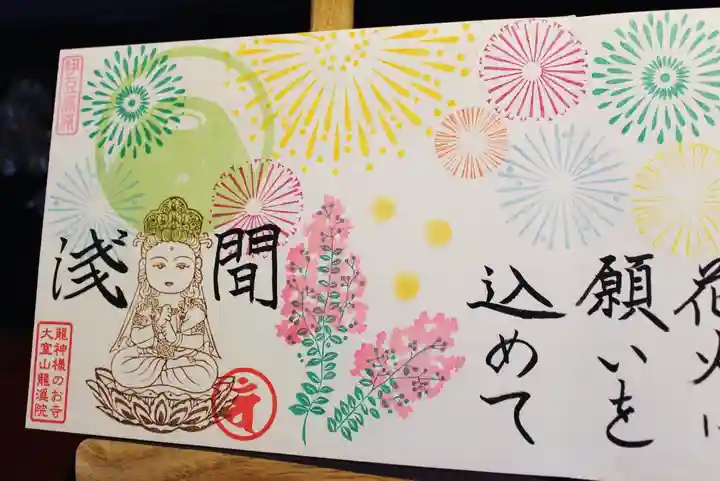 花火に
願いを
込めて
浅間
龍神様のお寺
大室山龍溪院